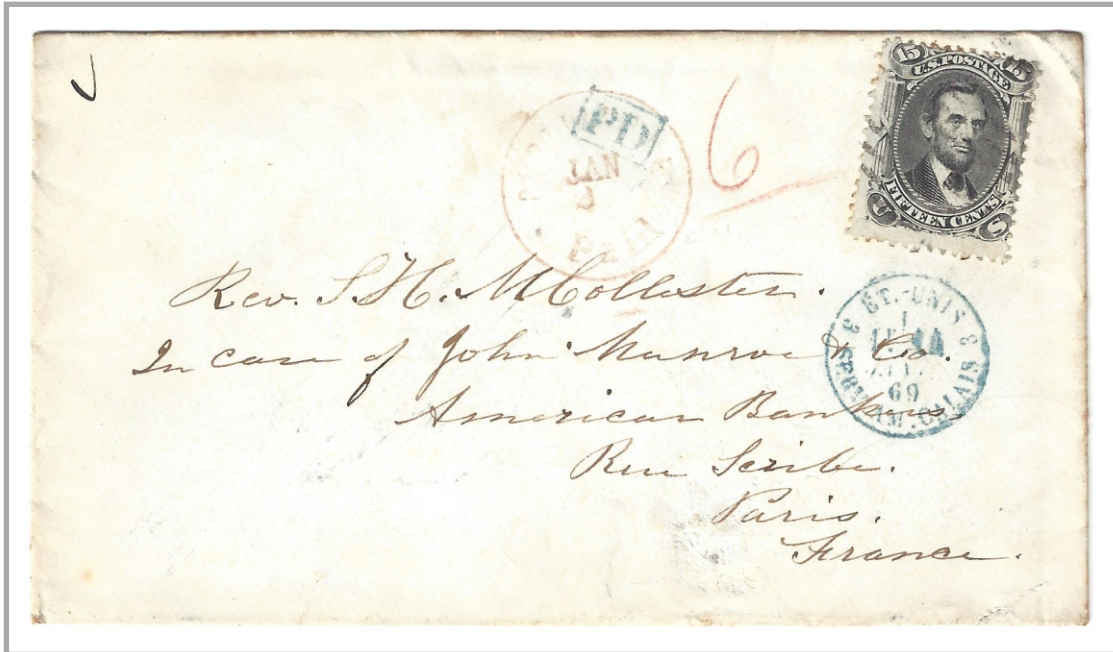 15 15
U.S. POSTAGE
FIFTEEN CENTS
U S
PD
JAN
PAID
6
3 ÉT.-UNIS 3
69
SERV. AM. CALAIS
Rev. S. H. McCollester.
In care of John Munroe & Co.
American Bankers
Rue Scribe.
Paris.
France.